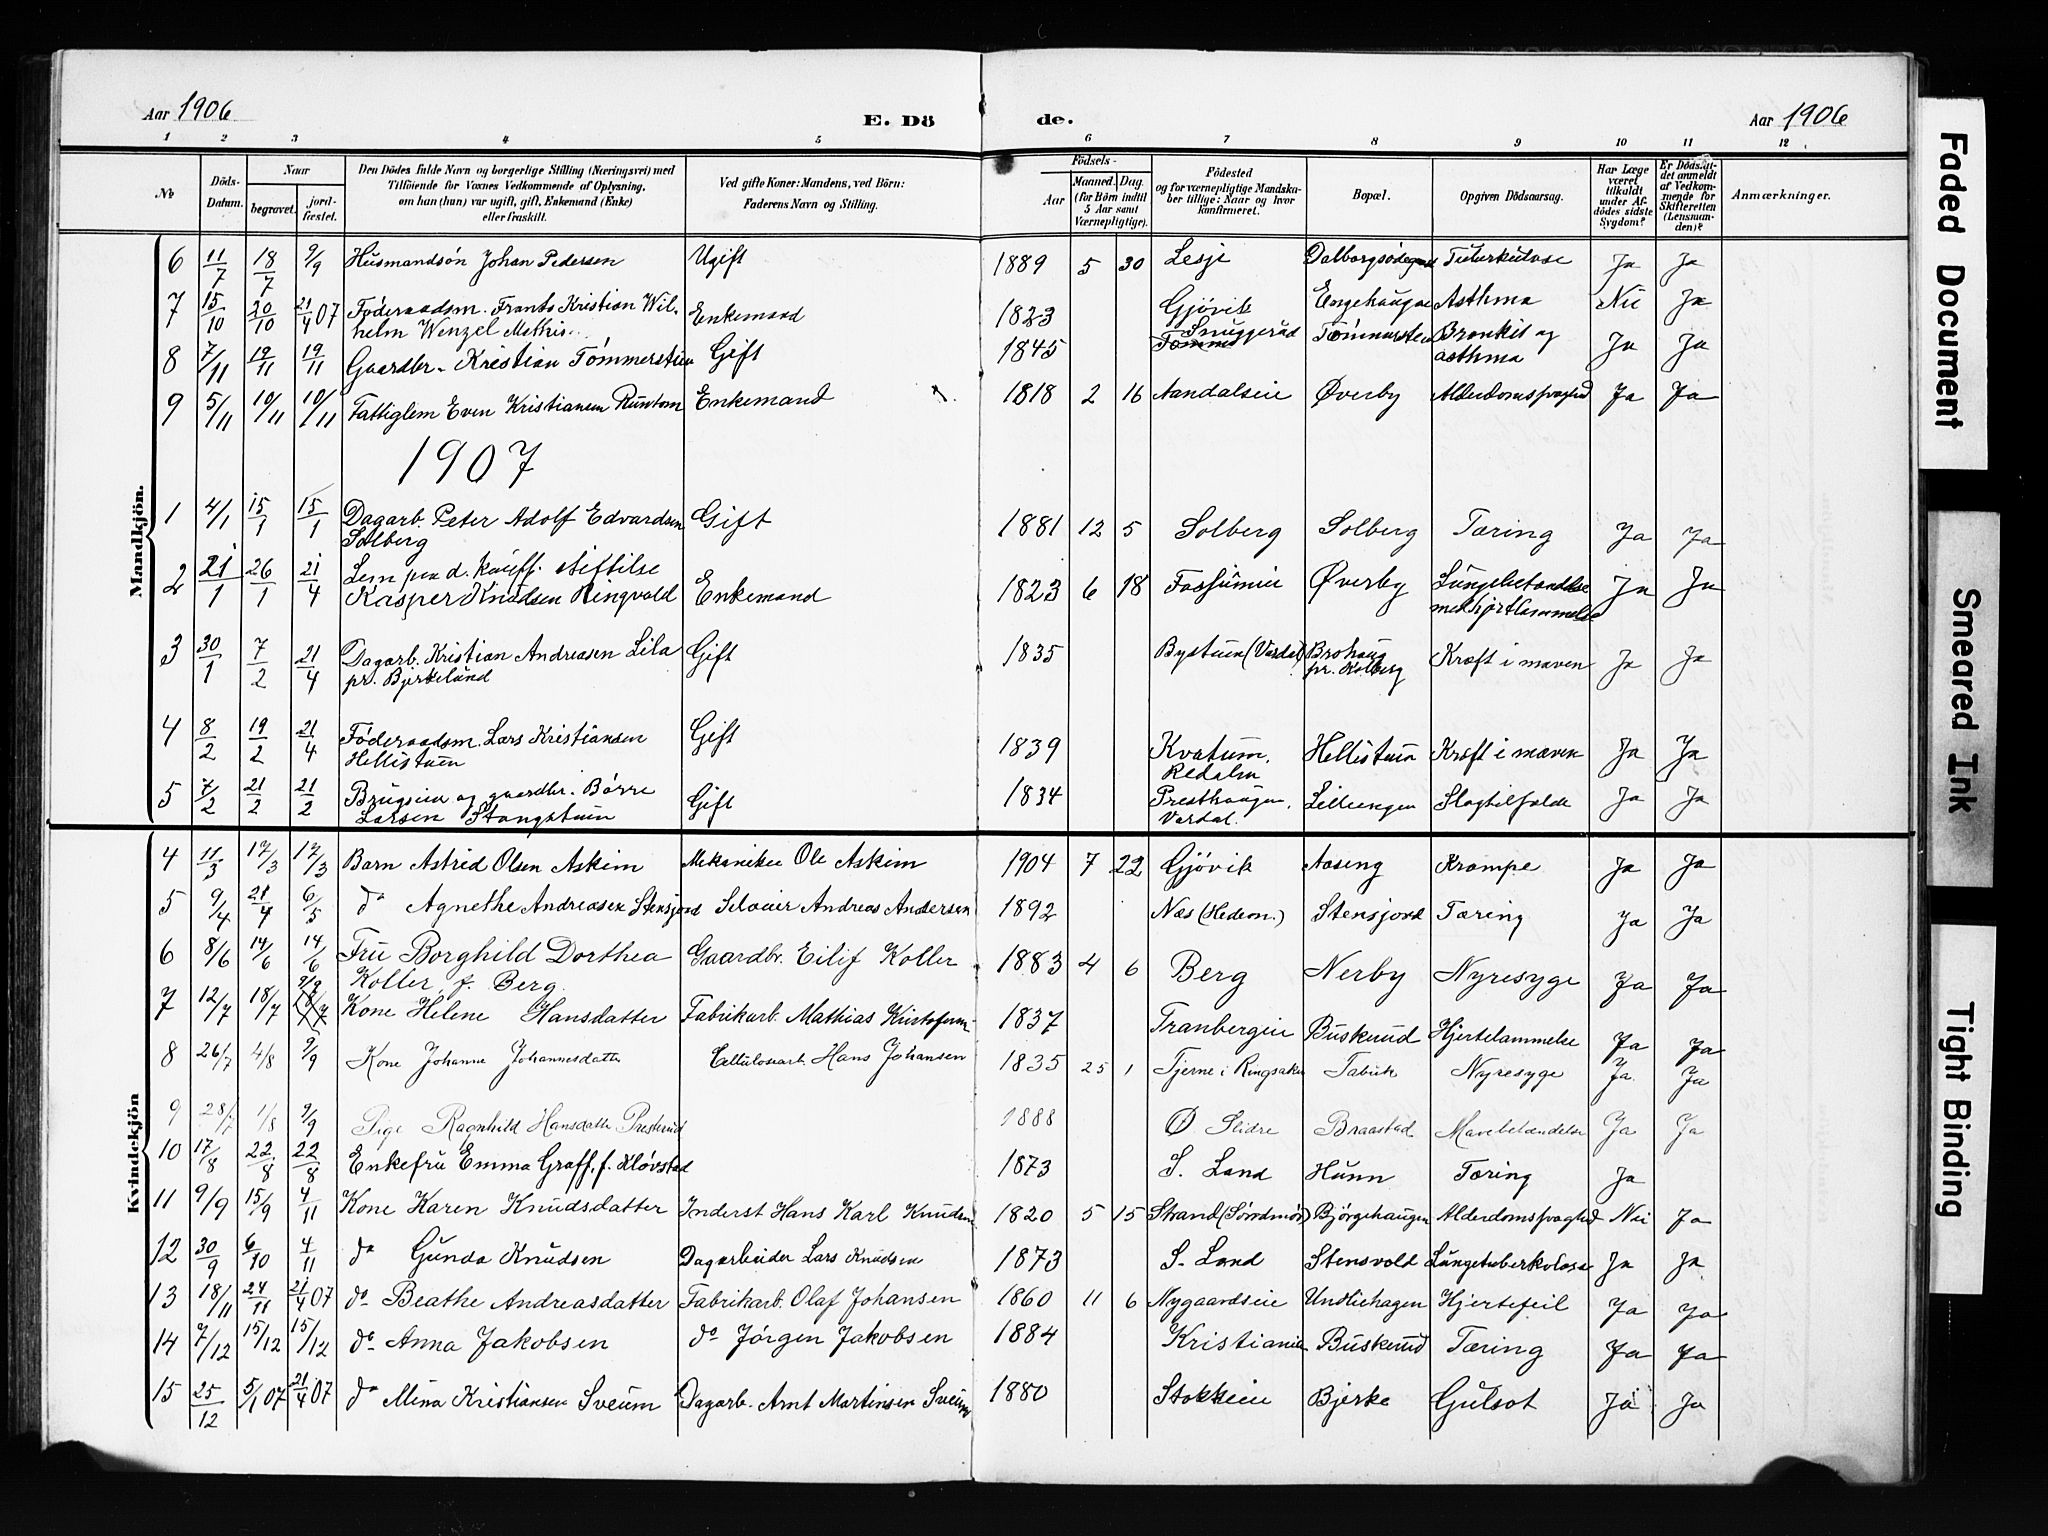 Aar 1906
E. Dö
de.
Aar 1906
1 2 3 4 5 6 7 8 9 10 11 12
№
Döds-Datum.
Naar
begravet.
jord-fæstet.
Den Dödes fulde Navn og borgerlige Stilling (Næringsvei) med
Tilföiende for Voxnes Vedkommende af Oplysning,
om han (hun) var ugift, gift, Enkemand (Enke)
eller fraskilt.
Ved gifte Koner: Mandens, ved Börn:
Faderens Navn og Stilling.
Födsels-
Aar
Maaned. Dag.
(for Börn indtil
5 Aar samt
Værnepligtige).
Födested
og for værnepligtige Mandska-
ber tillige: Naar og hvor
konfirmeret.
Bopæl.
Opgiven Dödsaarsag.
Har Læge
været
tilkaldt
under Af-
dödes sidste
Sygdom?
Er Dödsfal-
det anmeldt
af Vedkom-
mende for
Skifteretten
(Lensman-
den)?
Anmærkninger.
Mandkjön.
6 11/7 18/7 9/9 Husmandsøn Johan Pedersen Ugift 1889 5 30 Lesje Tuberkulose Ja Ja
7 15/10 20/10 21/4 07 Föderaadsm. Frants Kristian Wil- Enkemand 1823 Gjövik Engehaugen Asthma Nei Ja
helm Wenzel Mathis..
8 7/11 19/11 19/11 Gaardbr. Kristian Tömmerstuen Gift 1845 Snuggerud Tömmerstuen Bronkit og Ja Ja
asthma
9 5/11 10/11 10/11 Fattiglem Even Kristiansen Runtom Enkemand 1818 2 16 Aandalseie Øverby Alderdomssvaghed Ja Ja
1907
1 4/1 15/1 15/1 Dagarb. Peter Adolf Edvardsen Gift 1881 12 5 Solberg Solberg Tæring Ja Ja
Solberg
2 21/1 26/1 21/4 Lem paa d. kauff. stiftelse
Kasper Knudsen Ringvold Enkemand 1823 6 18 Fossumeie Øverby Lungebetændelse Ja Ja
med hjertlammelse
3 30/1 7/2 21/4 Dagarb. Kristian Andreasen Lila Gift 1835 Bystuen (Vardal) Brohaug Kræft i maven Ja Ja
pr. Bjerkelund pr. Kolberg
4 8/2 19/2 21/4 Föderaadsm. Lars Kristiansen Gift 1839 Kvatum, Hellistuen Kræft i maven Ja Ja
Hellistuen Redalen
5 7/2 21/2 21/2 Brugseier og gaardbr. Børre Gift 1834 Presthaugen, Lilleengen Slagtilfælde Ja Ja
Larsen Stangstuen Vardal.
Kvindekjön
4 11/3 17/3 17/3 Barn Astrid Olsen Askim Mekaniker Ole Askim 1904 7 22 Gjövik Aaseng Krampe Ja Ja
5 9/4 21/4 6/5 do Agnethe Andreasen Stensjord Seloeier Andreas Andersen 1892 Næs (Hedem.) Stensjord Tæring Ja Ja
6 8/6 14/6 14/6 Fru Borghild Dorthea Gaardbr. Eilif Koller 1883 4 6 Berg Nerby Nyresyge Ja Ja
Koller, f. Berg.
7 12/7 18/7 9/9 Kone Helene Hansdatter Fabrikarb. Mathias Kristofersen 1837 Tranbergeie Buskerud Hjertelammelse Ja Ja
8 26/7 4/8 9/9 Kone Johanne Johannesdatter Cellulosearb. Hans Johansen 1835 25 1 Tjerne i Ringsaker Fabrik Nyresyge Ja Ja
9 28/7 1/8 9/9 Pige Ragnhild Hansdatter Presterud 1888 Ø. Slidre Braastad Mavebetændelse Ja Ja
10 17/8 22/8 22/8 Enkefru Emma Graff, f. Kløvstad 1873 S. Land Hunn Tæring Ja
11 9/9 15/9 4/11 Kone Karen Knudsdatter Inderst Hans Karl Knudsen 1820 5 15 Strand (Søndmör) Bjørgehaugen Alderdomssvaghed Nei Ja
12 30/9 6/10 4/11 do Gunda Knudsen Dagarbeider Lars Knudsen 1873 S. Land Stensvold Lungetuberkulose Ja Ja
13 18/11 24/11 21/4 07 do Beathe Andreasdatter Fabrikarb. Olaf Johansen 1860 11 6 Nygaardseie Undliehagen Hjertefeil Ja Ja
14 7/12 15/12 15/12 do Anna Jakobsen do Jörgen Jakobsen 1884 Kristiania Buskerud Tæring Ja Ja
15 25/12 5/1 07 21/4 07 do Mina Kristiansen Sveum Dagarb. Arnt Martinsen Sveum 1880 Stokkeie Bjerke Gulsot Ja Ja
Faded Document
Smeared Ink
Tight Binding